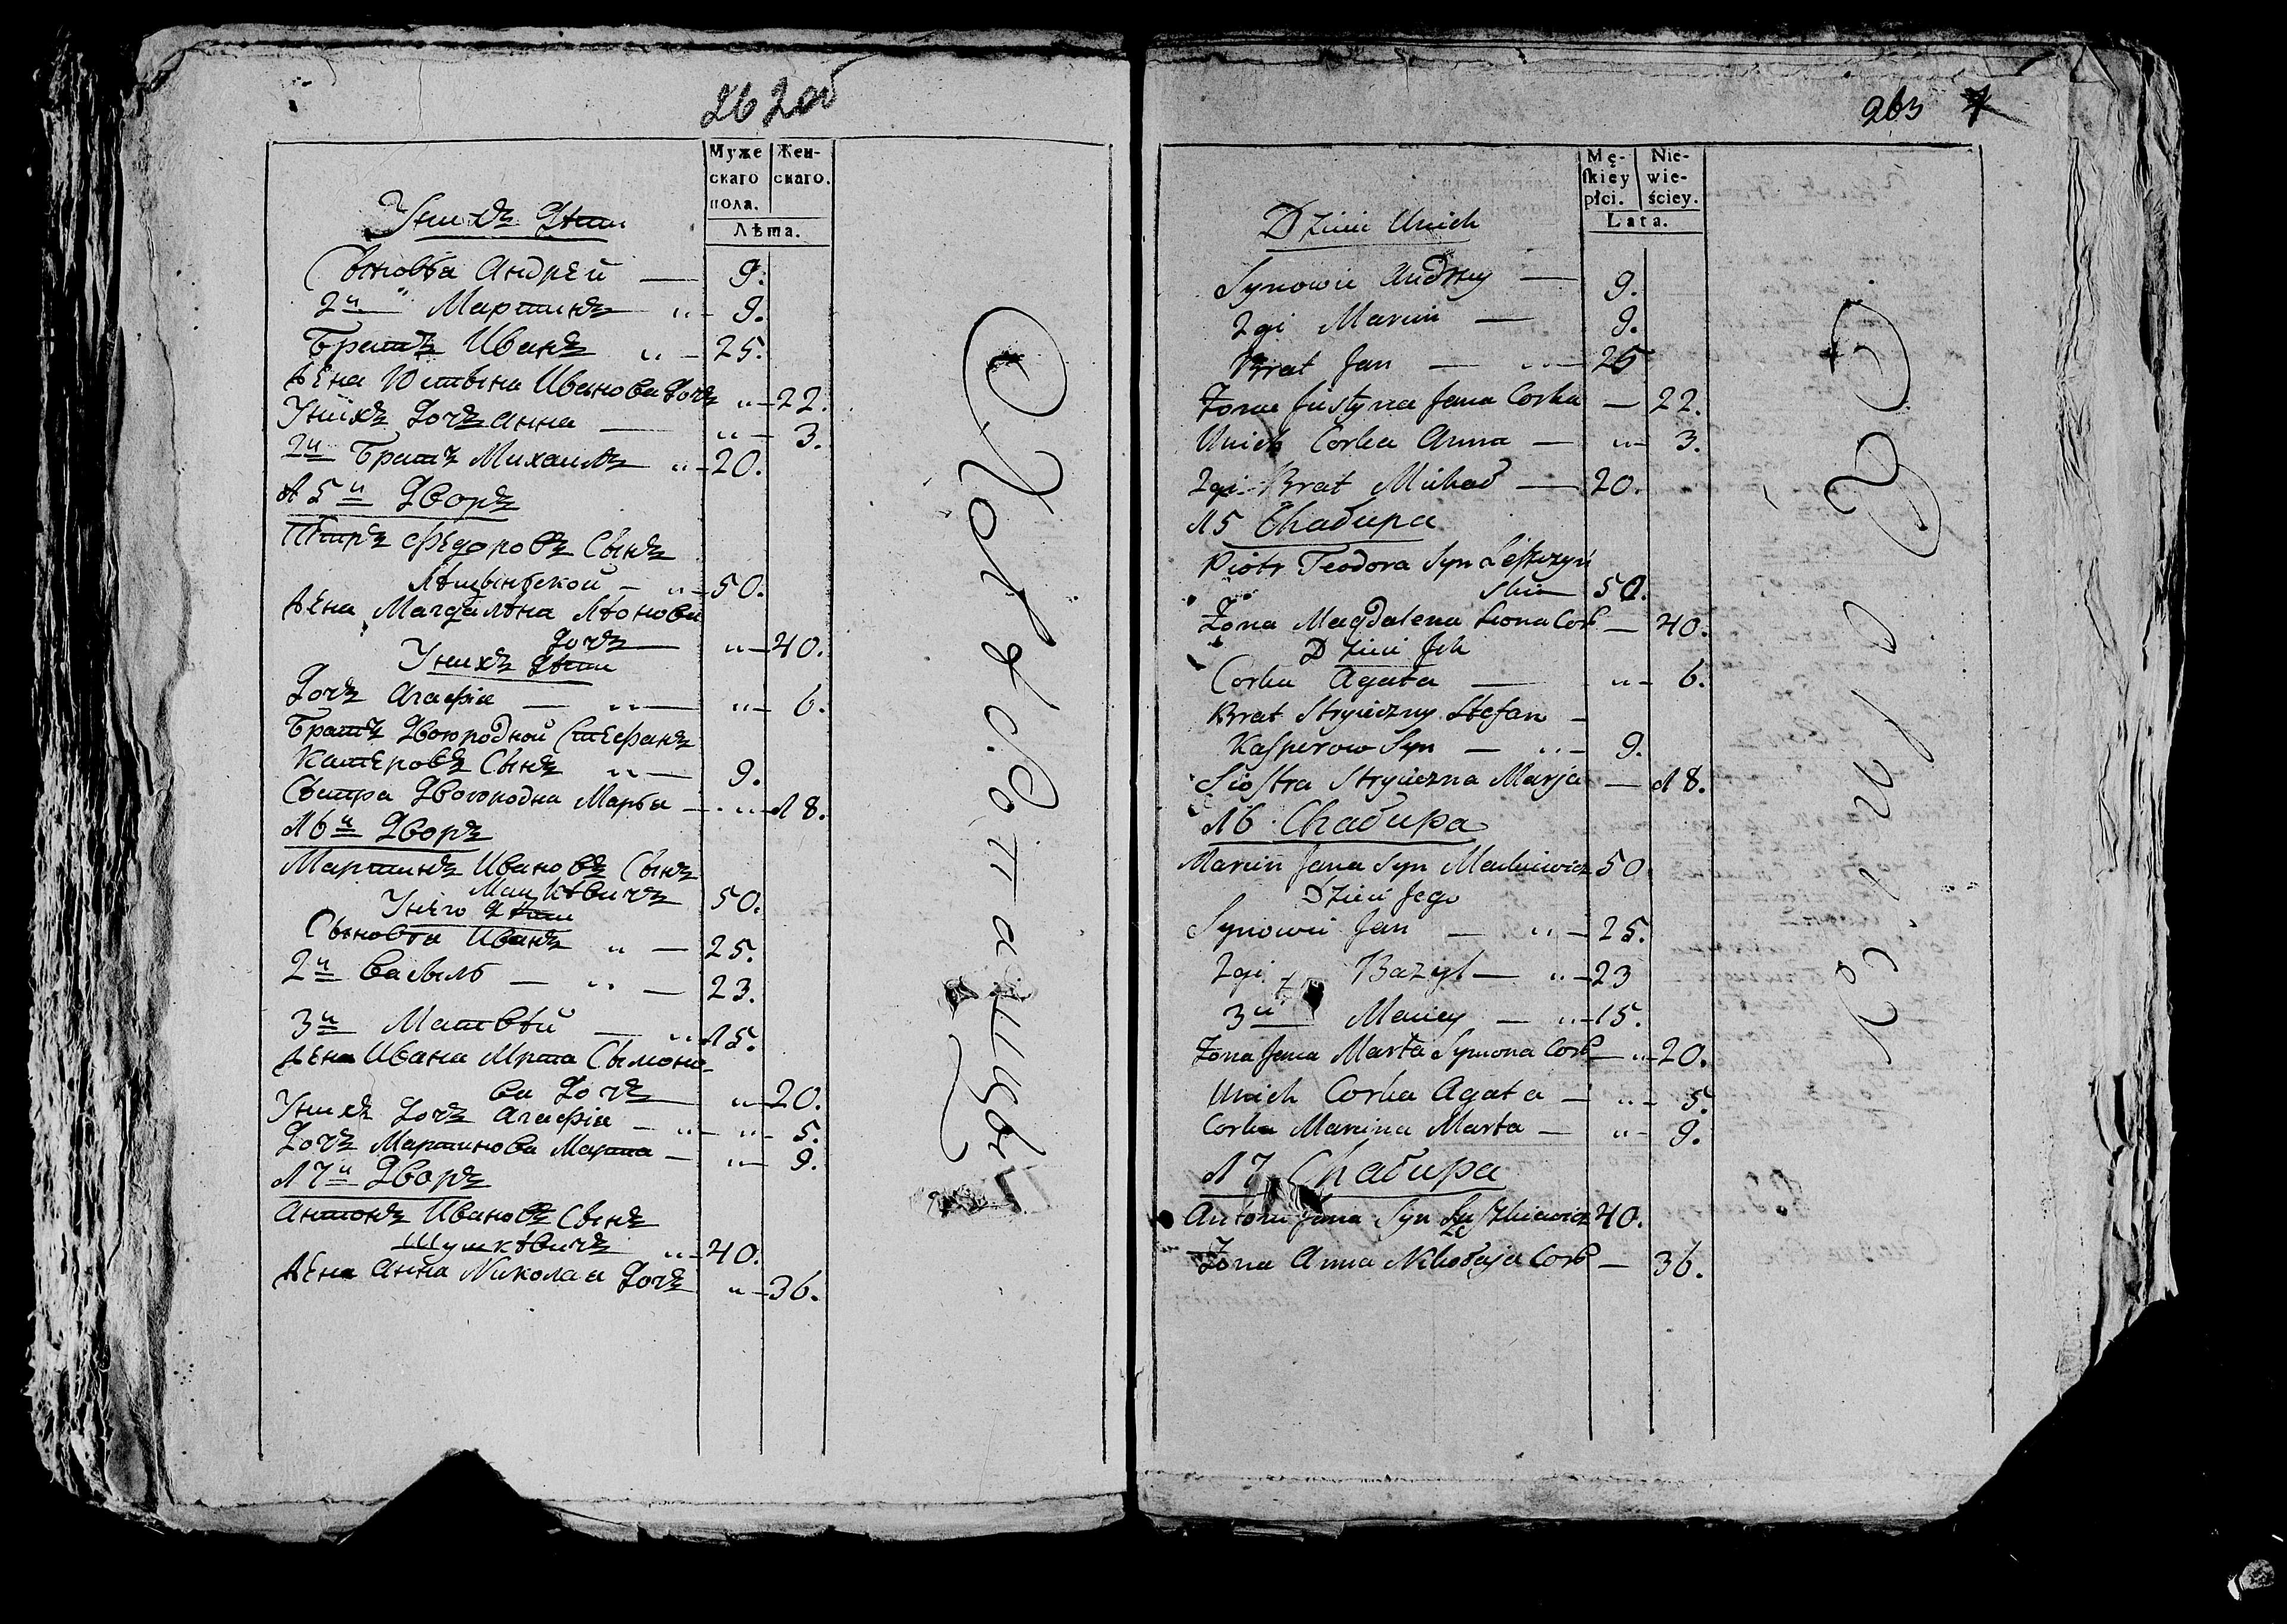 262об
Муже
скаго
пола.
Жен-
скаго.
Лѣта.
Унихъ Дѣти
Сыновья Андрей — 9.
2й " Мартинъ " — 9.
Братъ Иванъ " — 25.
Жена Юстына Иванова дочъ " — 22.
Унихъ Дочъ Анна — " — 3.
2й Братъ Михаилъ " — 20.
15й Дворъ
Петръ Федоровъ Сынъ
Лещынской — " — 50.
Жена Магдалѣна Лѣонова
Дочъ " — 40.
Унихъ Дѣти
Дочъ Агафiя — " — " — 6.
Братъ Двоюродной Стефанъ
Касперовъ Сынъ " — 9.
Сѣстра Двоюродна Марья — " — 18.
16й Дворъ
Мартинъ Ивановъ Сынъ
50.
Унего Дѣти
Сыновья Иванъ " — 25.
2й Васыль — " — 23.
3й Матвѣй — " 15.
Жена Ивана Мрта Сымоно-
ва Дочъ " — 20.
Унихъ Дочъ Агафiя — " — " — 5.
Дочъ Мартинова Марта — " — 9.
17й Дворъ
Антонъ Ивановъ Сынъ
Шушкѣвичъ " — 40.
Жена Анна Николая Дочъ " — 36.
263
Mę-
ſkiey
płci.
Nie-
wie-
ściey.
Lata.
Dzieci Unich
Synowie Andrzey — 9.
2gi Marcin — 9.
Brat Jan — " — 25
Żona Justyna Jana Corka — 22.
Unich Corka Anna — " — 3.
2gi Brat Michał — 20.
15 Chałupa
Piotr Teodora Syn Leszczyń
ski — 50.
Żona Magdalena Leona Cor — 40.
Dzieci Ich
Corka Agata — " — 6.
Brat Stryieczny Stefan —
Kasperow Syn — " — 9.
Siostra Stryieczna Marja — 18.
16 Chałupa
Marcin Jana Syn 50
Dzieci Jego
Synowie Jan — " — 25.
2gi Bazyl — " — 23
3ci Maciey — " — 15.
Żona Jana Marta Symona Cor — " — 20.
Unich Corka Agata — " — 5.
Corka Marcina Marta — " — 9.
17 Chałupa
Antoni Jana Syn 40.
Żona Anna Nikołaja Cor — 36.